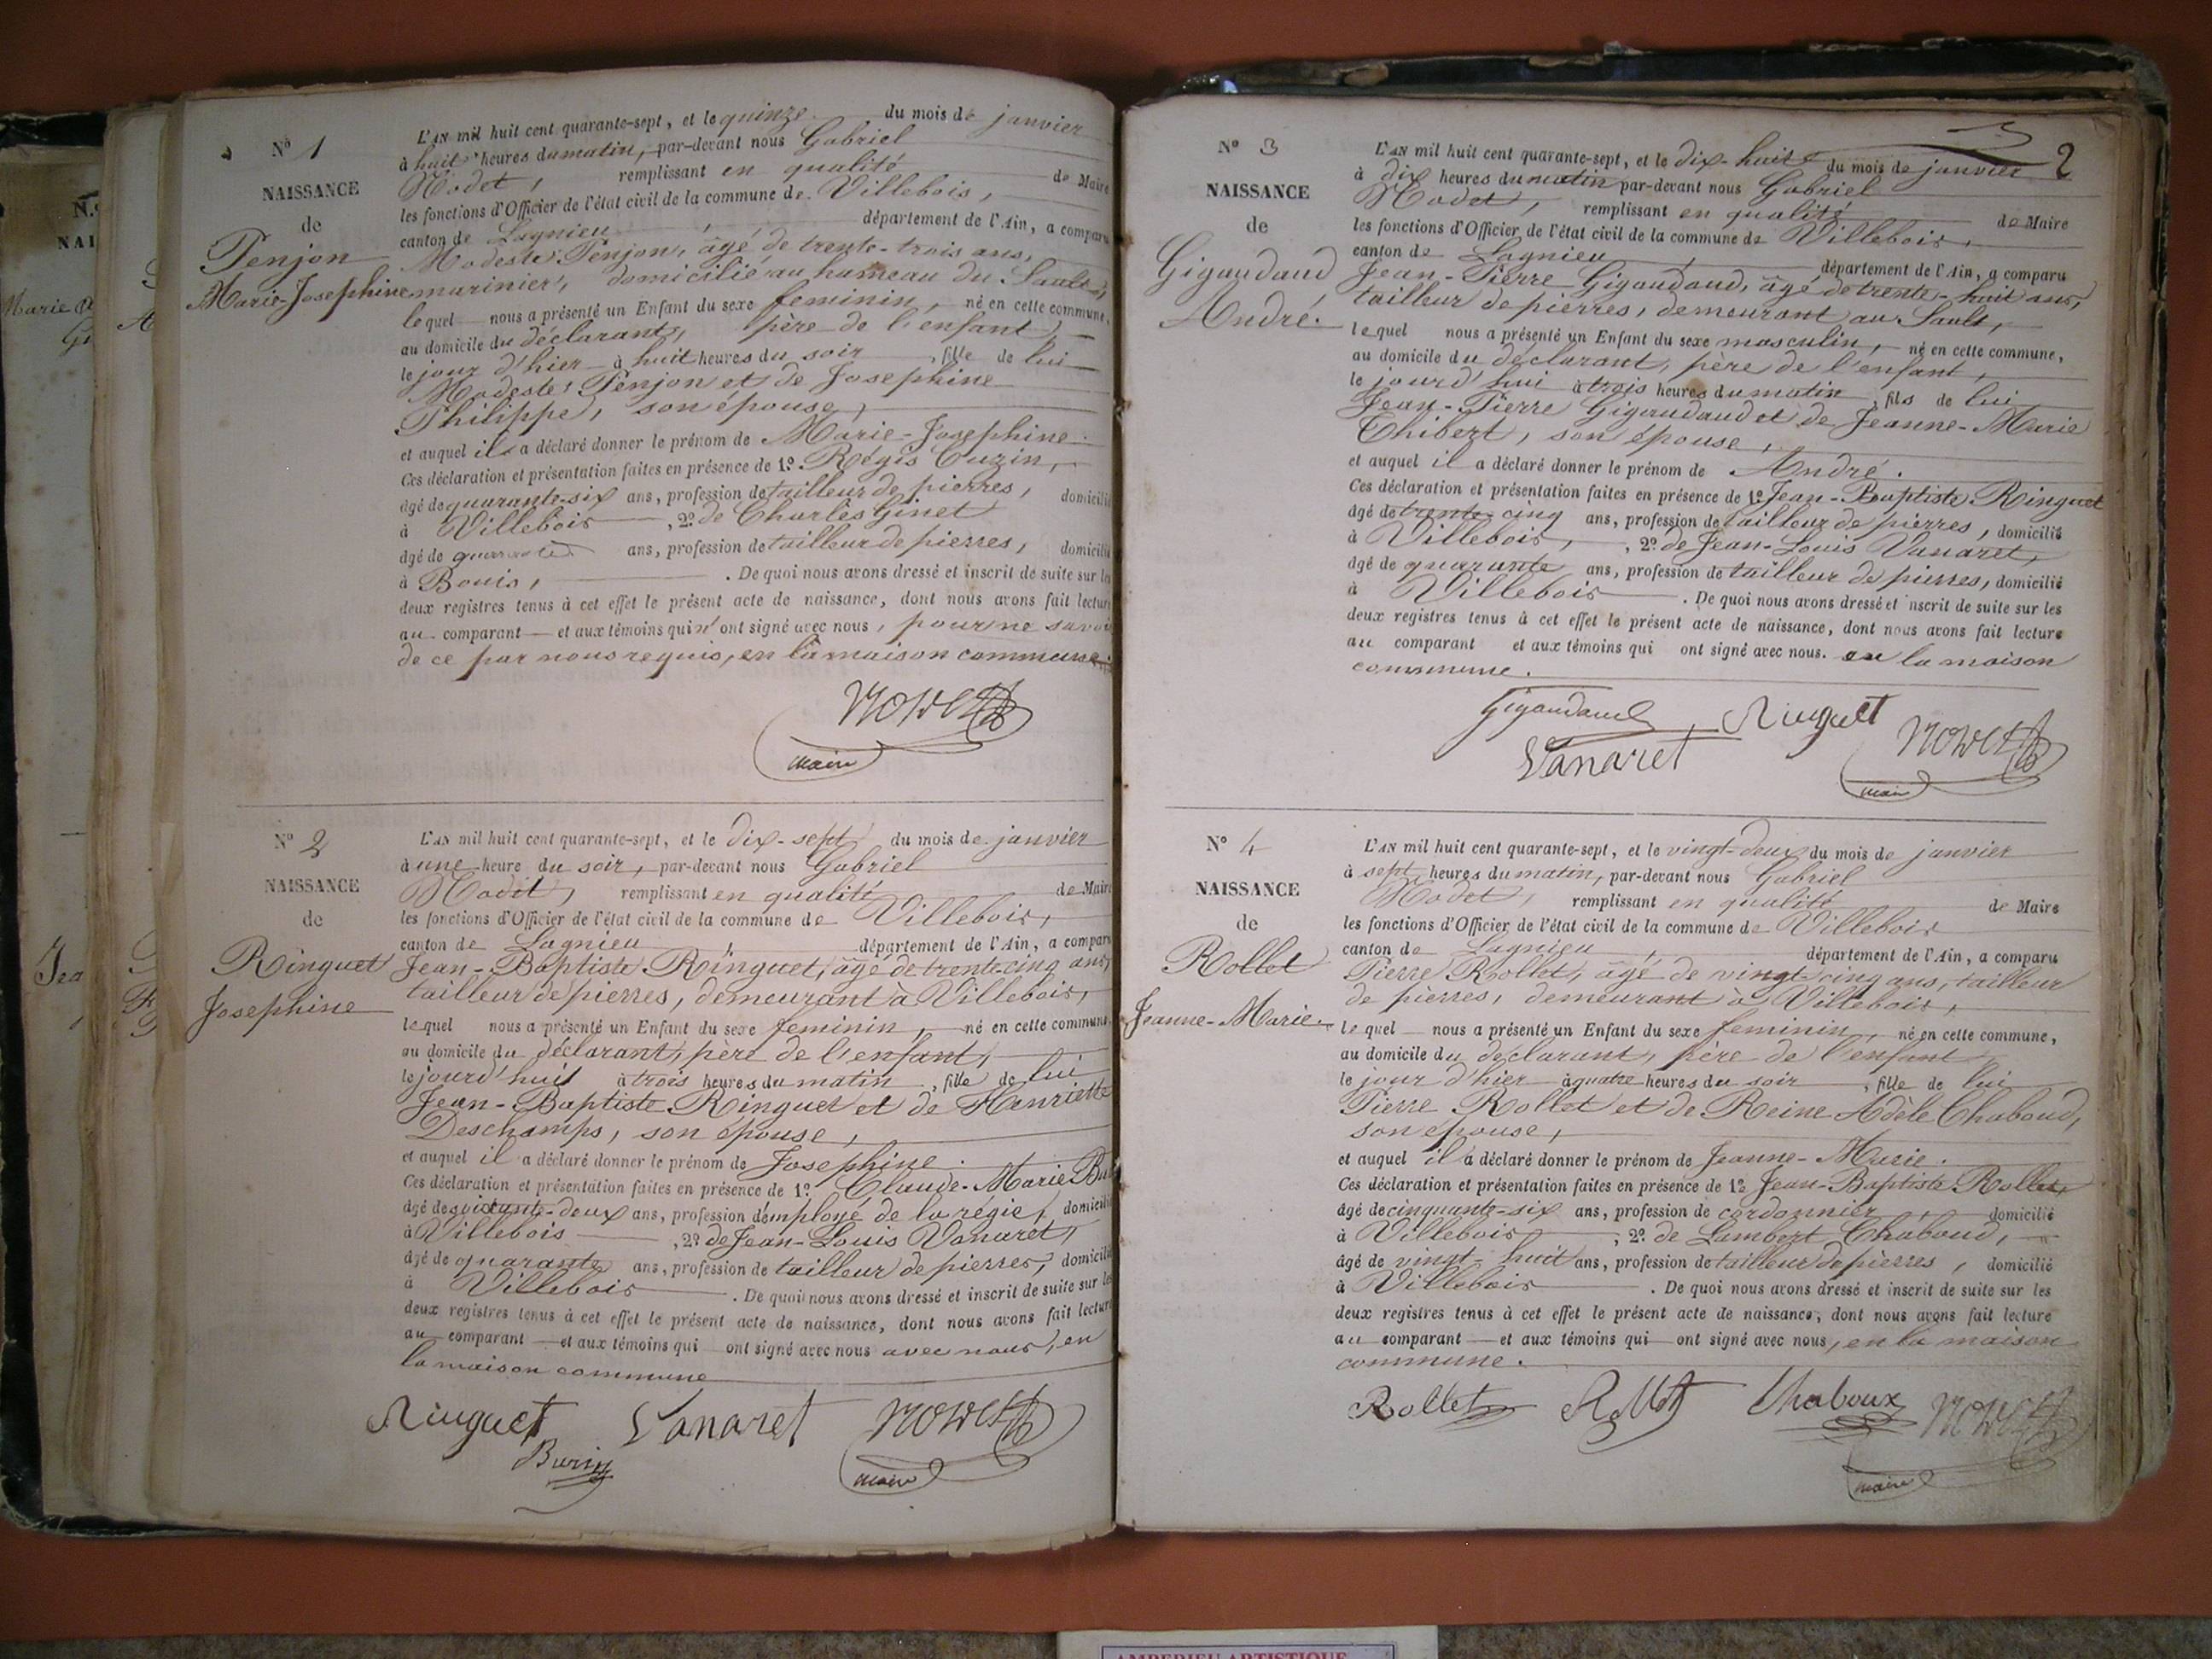 N.
NAI
Marie
Gi
A
Jea
Nº 1
NAISSANCE
de
Penjon
Marie-Josephine
L'AN mil huit cent quarante-sept, et le quinze du mois de janvier
à huit heures du matin, par-devant nous Gabriel
Nodet, remplissant en qualité de Maire
les fonctions d'Officier de l'état civil de la commune de Villebois,
canton de Lagnieu, département de l'Ain, a comparu
Modeste Penjon, âgé de trente-trois ans,
marinier, domicilié au hameau du Sault,
lequel nous a présenté un Enfant du sexe feminin, né en cette commune,
au domicile du déclarant, père de l'enfant,
le jour d'hier à huit heures du soir, fille de lui
Modeste Penjon et de Josephine
Philippe, son épouse,
et auquel il a déclaré donner le prénom de Marie-Josephine.
Ces déclaration et présentation faites en présence de 1º Régis Cuzin,
âgé de quarante-six ans, profession de tailleur de pierres, domicilié
à Villebois, 2º de Charles Ginet
âgé de quarante ans, profession de tailleur de pierres, domicilié
à Bouis, . De quoi nous avons dressé et inscrit de suite sur les
deux registres tenus à cet effet le présent acte de naissance, dont nous avons fait lecture
au comparant et aux témoins qui n'ont signé avec nous, pour ne savoir
de ce par nous requis, en la maison commune.
maire
Nº 2
NAISSANCE
de
Ringuet
Josephine
L'AN mil huit cent quarante-sept, et le dix-sept du mois de janvier
à une heure du soir, par-devant nous Gabriel
Nodet, remplissant en qualité de Maire
les fonctions d'Officier de l'état civil de la commune de Villebois,
canton de Lagnieu, département de l'Ain, a comparu
Jean-Baptiste Ringuet, âgé de trente cinq ans,
tailleur de pierres, demeurant à Villebois,
lequel nous a présenté un Enfant du sexe feminin, né en cette commune,
au domicile du déclarant, père de l'enfant,
le jourd'hui à trois heures du matin, fille de lui
Jean-Baptiste Ringuet et de Henriette
Deschamps, son épouse,
et auquel il a déclaré donner le prénom de Josephine.
Ces déclaration et présentation faites en présence de 1º Claude-Marie Bu
âgé de soixante-deux ans, profession d'employé de la régie, domicilié
à Villebois, 2º de Jean-Louis Vanaret,
âgé de quarante ans, profession de tailleur de pierres, domicilié
à Villebois . De quoi nous avons dressé et inscrit de suite sur les
deux registres tenus à cet effet le présent acte de naissance, dont nous avons fait lecture
au comparant et aux témoins qui ont signé avec nous avec nous, en
la maison commune
Ringuet Vanaret
Burin
maire
2
Nº 3
NAISSANCE
de
Gigaudaud
André.
L'AN mil huit cent quarante-sept, et le dix-huit du mois de janvier
à dix heures du matin par-devant nous Gabriel
Nodet, remplissant en qualité de Maire
les fonctions d'Officier de l'état civil de la commune de Villebois,
canton de Lagnieu, département de l'Ain, a comparu
Jean-Pierre Gigaudaud, âgé de trente-huit ans,
tailleur de pierres, demeurant au Sault,
lequel nous a présenté un Enfant du sexe masculin, né en cette commune,
au domicile du déclarant, père de l'enfant,
le jourd'hui à trois heures du matin, fils de lui
Jean-Pierre Gigaudaud et de Jeanne-Marie
Thibert, son épouse,
et auquel il a déclaré donner le prénom de André.
Ces déclaration et présentation faites en présence de 1º Jean-Baptiste Ringuet
âgé de trente-cinq ans, profession de tailleur de pierres, domicilié
à Villebois, 2º de Jean-Louis Vanaret,
âgé de quarante ans, profession de tailleur de pierres, domicilié
à Villebois . De quoi nous avons dressé et inscrit de suite sur les
deux registres tenus à cet effet le présent acte de naissance, dont nous avons fait lecture
au comparant et aux témoins qui ont signé avec nous. en la maison
commune.
Gigaudaud Ringuet
Vanaret
maire
Nº 4
NAISSANCE
de
Rollet
Jeanne-Marie.
L'AN mil huit cent quarante-sept, et le vingt-deux du mois de janvier
à sept heures du matin, par-devant nous Gabriel
Nodet, remplissant en qualité de Maire
les fonctions d'Officier de l'état civil de la commune de Villebois
canton de Lagnieu, département de l'Ain, a comparu
Pierre Rollet, âgé de vingt cinq ans, tailleur
de pierres, demeurant à Villebois,
lequel nous a présenté un Enfant du sexe feminin, né en cette commune,
au domicile du déclarant, père de l'enfant
le jour d'hier à quatre heures du soir, fille de lui
Pierre Rollet et de Reine-Adèle Chaboud,
son épouse,
et auquel il a déclaré donner le prénom de Jeanne-Marie.
Ces déclaration et présentation faites en présence de 1º Jean-Baptiste Rollet,
âgé de cinquante-six ans, profession de cordonnier, domicilié
à Villebois, 2º de Lambert Chaboud,
âgé de vingt-huit ans, profession de tailleur de pierres, domicilié
à Villebois . De quoi nous avons dressé et inscrit de suite sur les
deux registres tenus à cet effet le présent acte de naissance, dont nous avons fait lecture
au comparant et aux témoins qui ont signé avec nous, en la maison
commune.
Rollet Rollet Chaboux
maire
AMBERIEU ARTISTIQUE